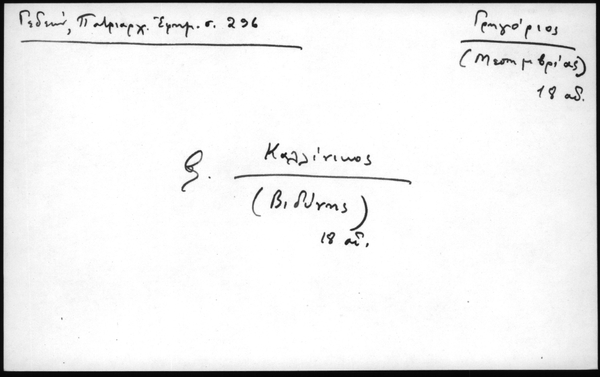 Γεδεών, Πατριαρχ. Ἐφημ. σ. 296
Γρηγόριος
(Μεσημβρίας)
18 αἰ.
Καλλίνικος
(Βιδύνης)
18 αἰ.